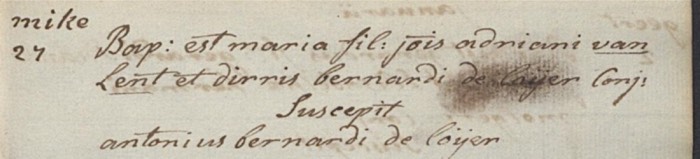 mike
27 Bap: est maria fil: jois adriani van
Lent et dirris bernardi de loijer Conj:
Suscepit
antonius bernardi de loijer